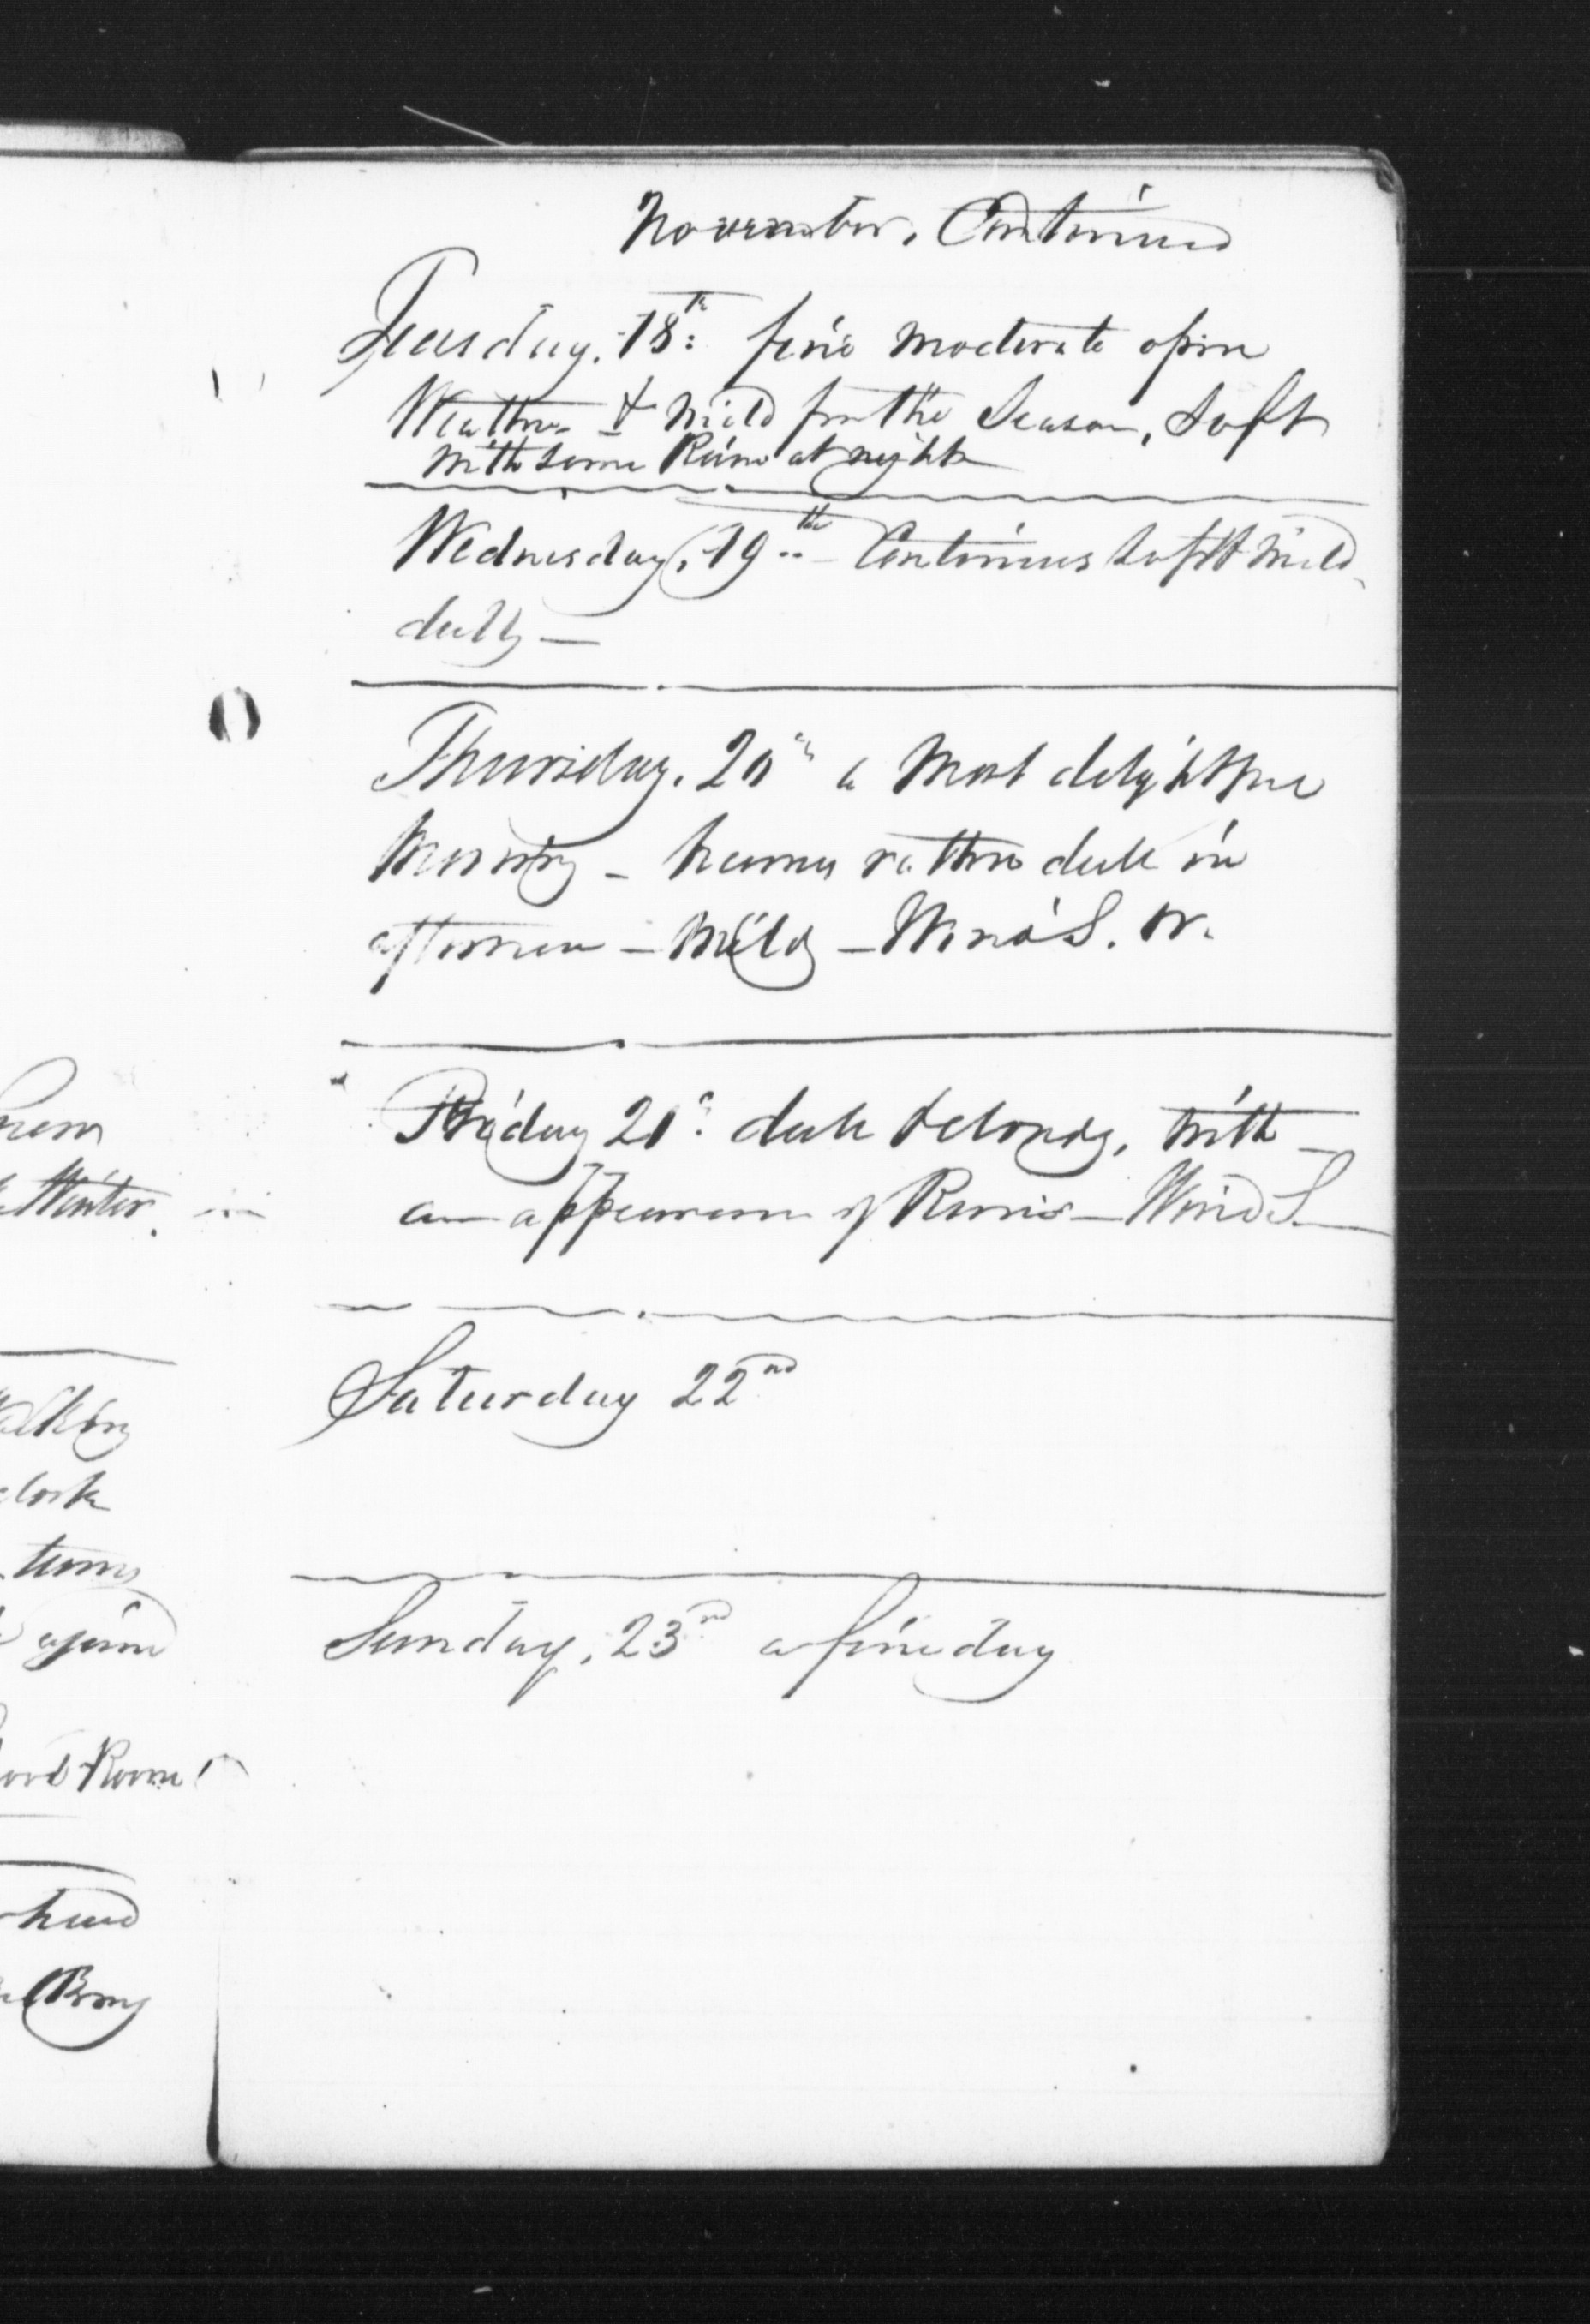 November, Continued
Tuesday, 18th fine moderate open
Weather & Mild for the Season, Soft
with some Rain at night
Wednesday, 19th Continues Soft & Mild
dull —
Thursday. 20th a Most delightful
Morning — hazy rather dull in
afternoon — Mild — Wind S. W.
Friday 21st dull & cloudy, with
an appearance of Rain — Wind S.
Saturday 22nd
Sunday, 23rd a fine day
Winter
Walking
again
Room